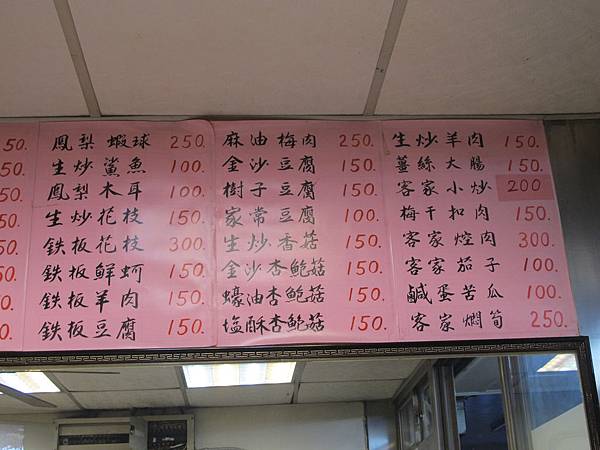 50.
50.
50.
50.
50.
50.
0.
0.
鳳梨蝦球 250.
生炒鯊魚 100.
鳳梨木耳 100.
生炒花枝 150.
鉄板花枝 300.
鉄板鮮蚵 150.
鉄板羊肉 150.
鉄板豆腐 150.
麻油梅肉 250.
金沙豆腐 150.
樹子豆腐 150.
家常豆腐 100.
生炒香菇 150.
金沙杏鮑菇 150.
蠔油杏鮑菇 150.
塩酥杏鮑菇 150.
生炒羊肉 150.
薑絲大腸 150.
客家小炒 200
梅干扣肉 150.
客家焢肉 300.
客家茄子 100.
鹹蛋苦瓜 100.
客家燜筍 250.